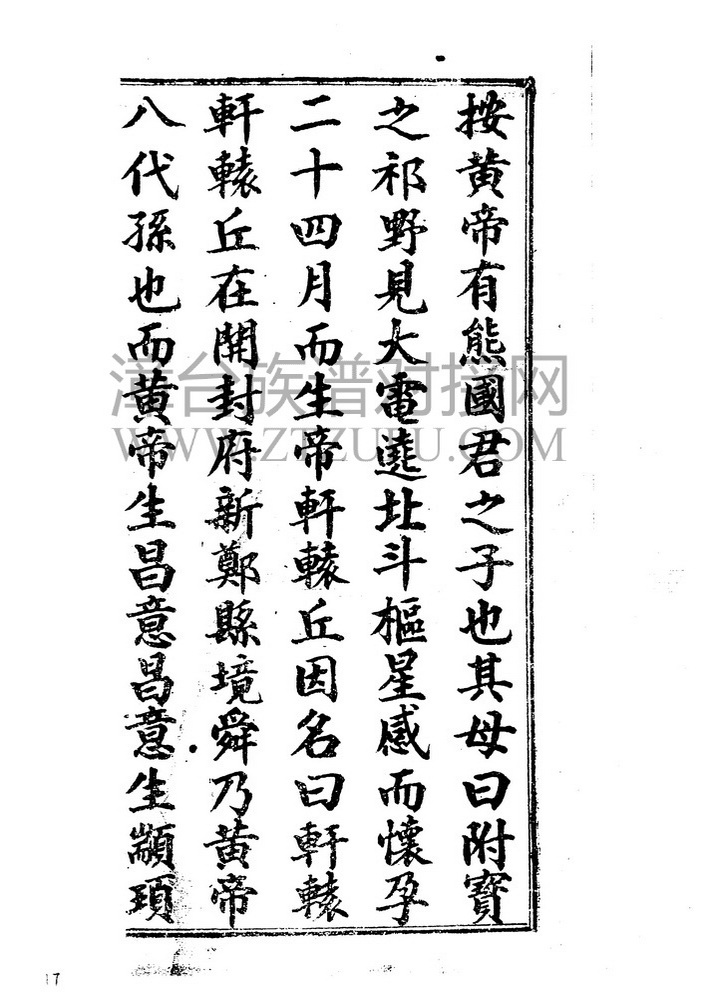 按黄帝有熊國君之子也其母曰附寳
之祁野見大電遶北斗樞星感而懷孕
二十四月而生帝軒轅丘因名曰軒轅
軒轅丘在開封府新鄭縣境舜乃黄帝
八代孫也而黄帝生昌意昌意生顓頊
漳台族谱对接网
WWW.ZTZUPU.COM
17